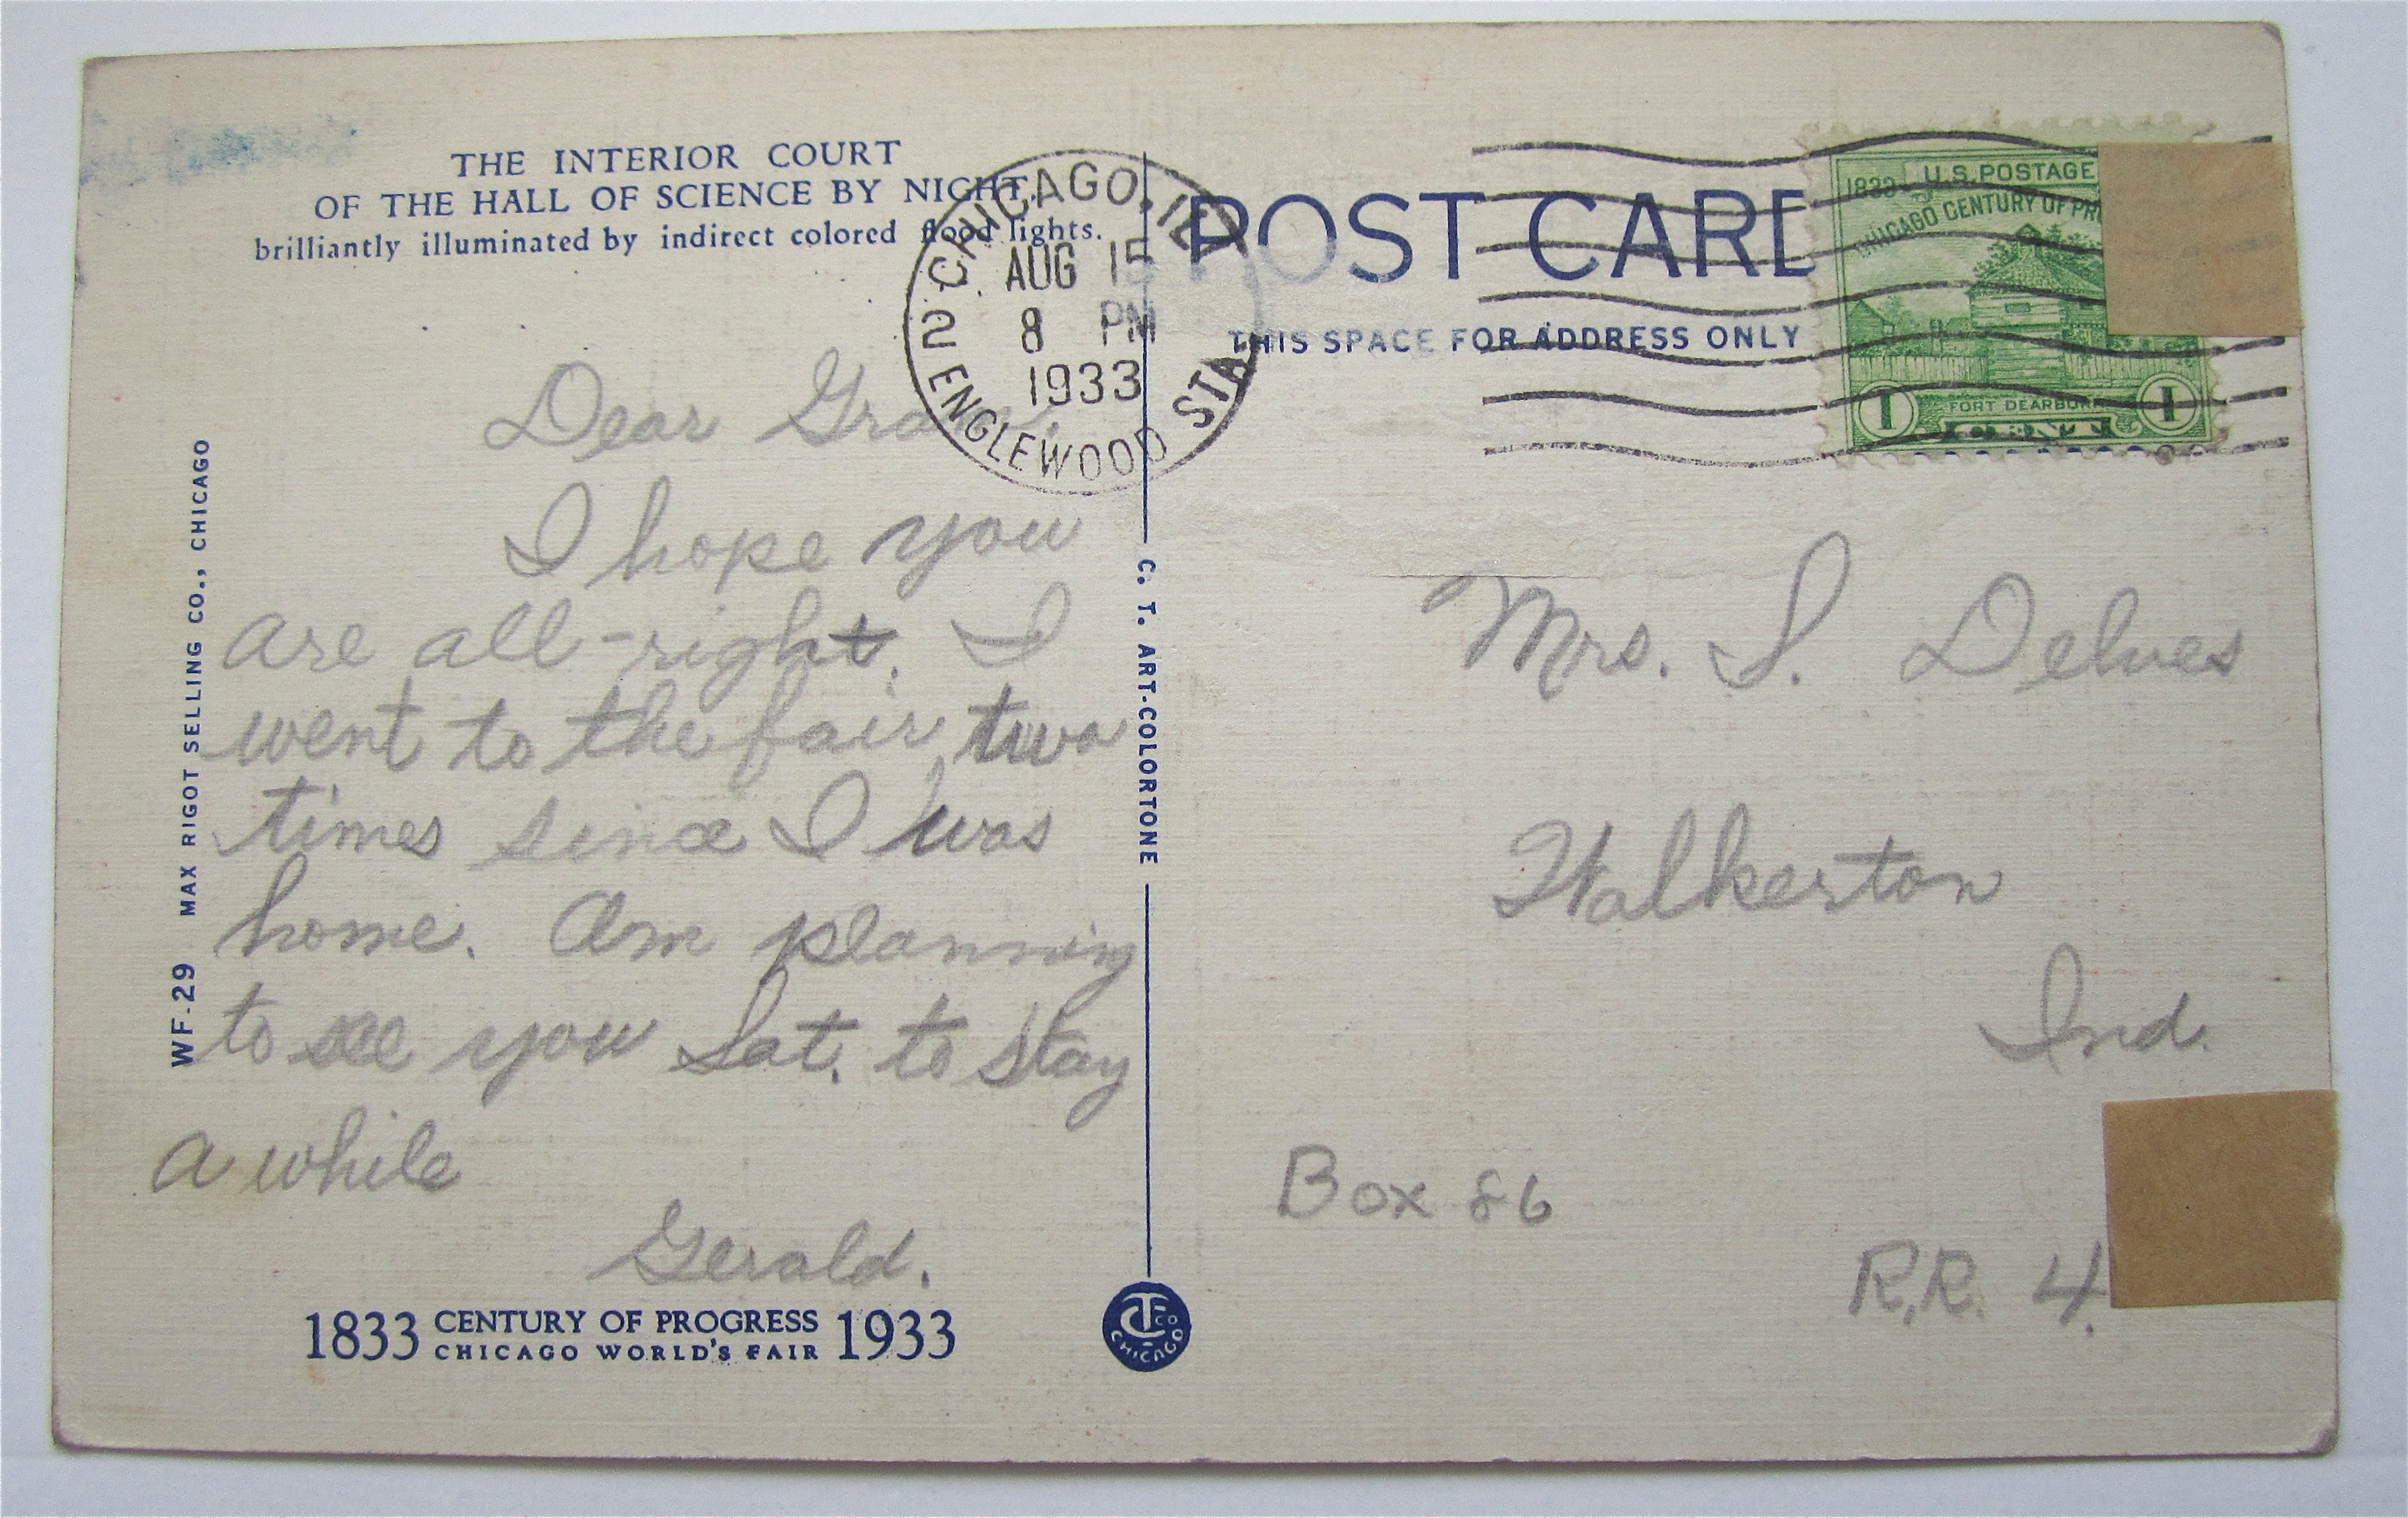 THE INTERIOR COURT
OF THE HALL OF SCIENCE BY NIGHT,
brilliantly illuminated by indirect colored flood lights.
CHICAGO, ILL.
AUG 15
8 PM
1933
2 ENGLEWOOD STA.
POST CARD
THIS SPACE FOR ADDRESS ONLY
1833 U.S. POSTAGE
CHICAGO CENTURY OF PR
FORT DEARBORN
1 1
Dear
I hope you
are all-right. I
went to the fair two
times since I was
home. Am planning
to see you Sat. to stay
a while
Gerald.
Mrs. S. Delves
Walkerton
Ind.
Box 86
R.R. 4.
WF-29 MAX RIGOT SELLING CO., CHICAGO
C. T. ART-COLORTONE
1833 CENTURY OF PROGRESS 1933
CHICAGO WORLD'S FAIR
CT CO
CHICAGO